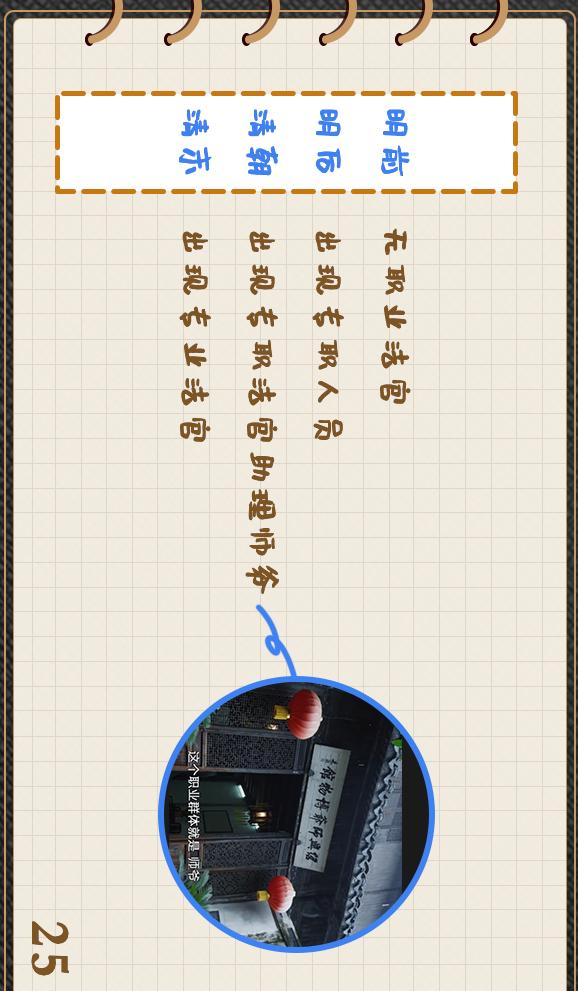 明前 无职业法官
明后 出现专职人员
清朝 出现专职法官助理师爷
清末 出现专业法官
紹興師爺博物館
这个职业群体就是 师爷
25